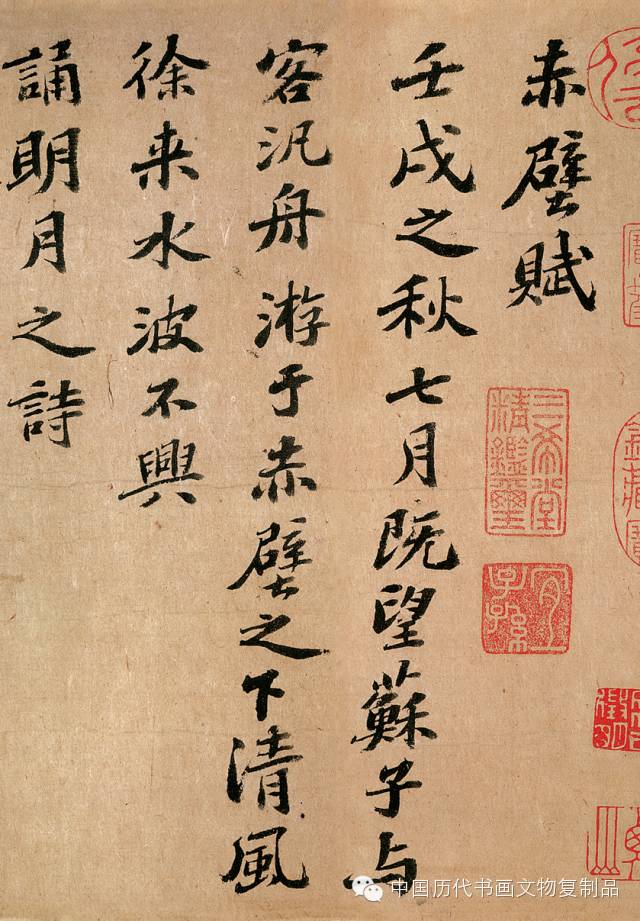 赤壁賦
壬戌之秋七月既望蘇子与
客汎舟游于赤壁之下清風
徐来水波不興
誦明月之詩
三希堂精鑑璽
宜子孫
中国历代书画文物复制品